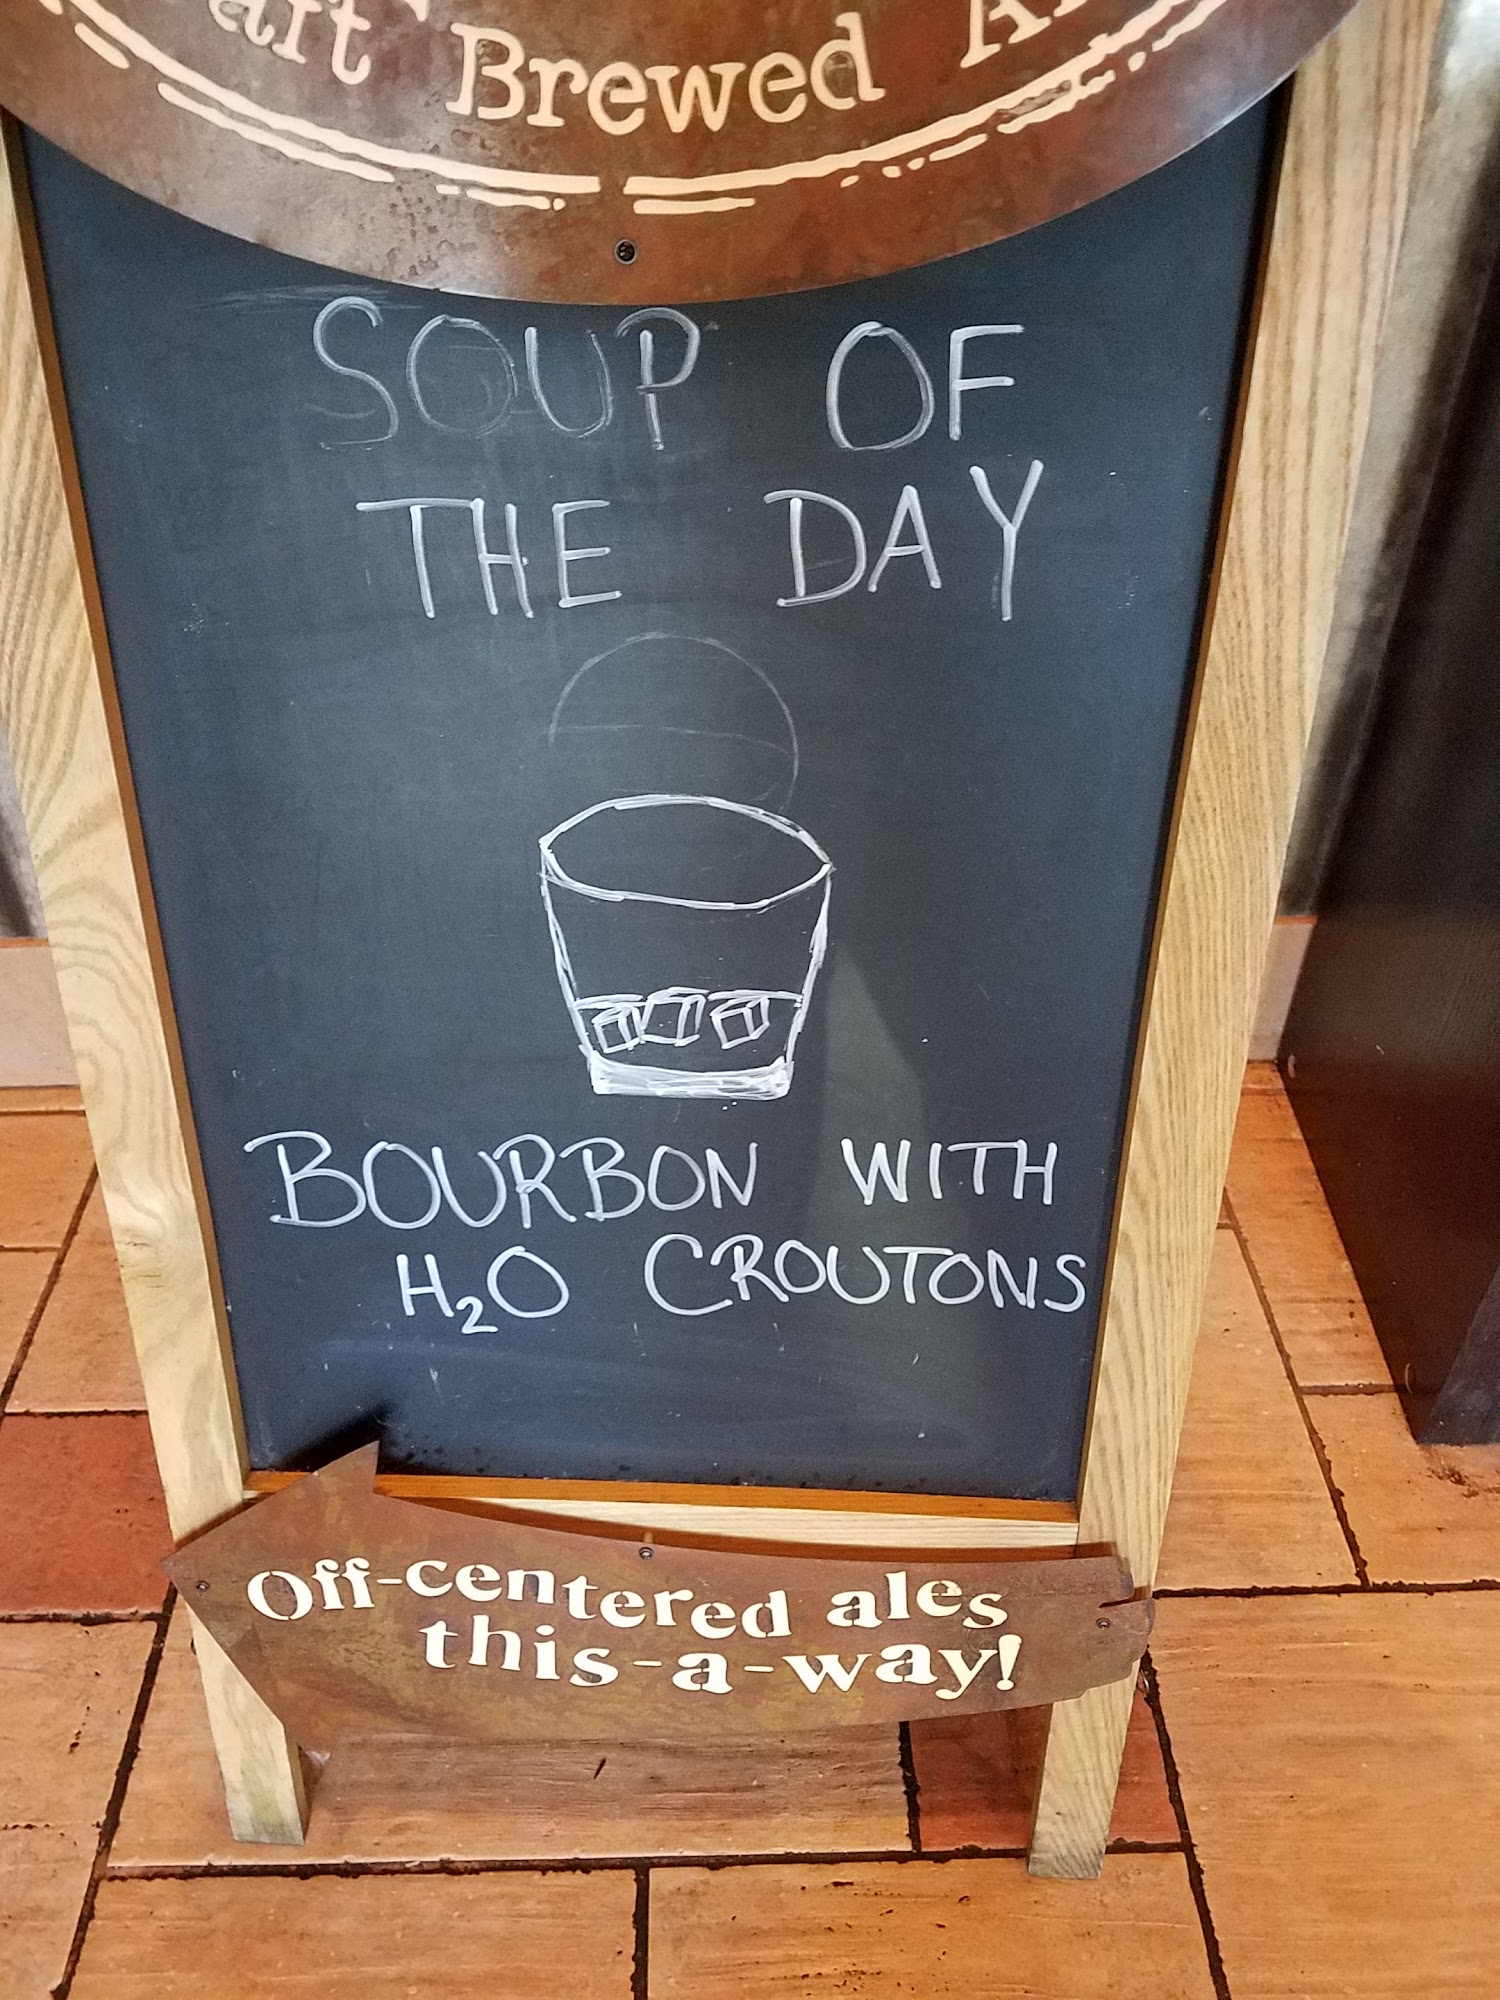 Brewed
SOUP OF
THE DAY
BOURBON WITH
H₂O CROUTONS
Off-centered ales
this-a-way!